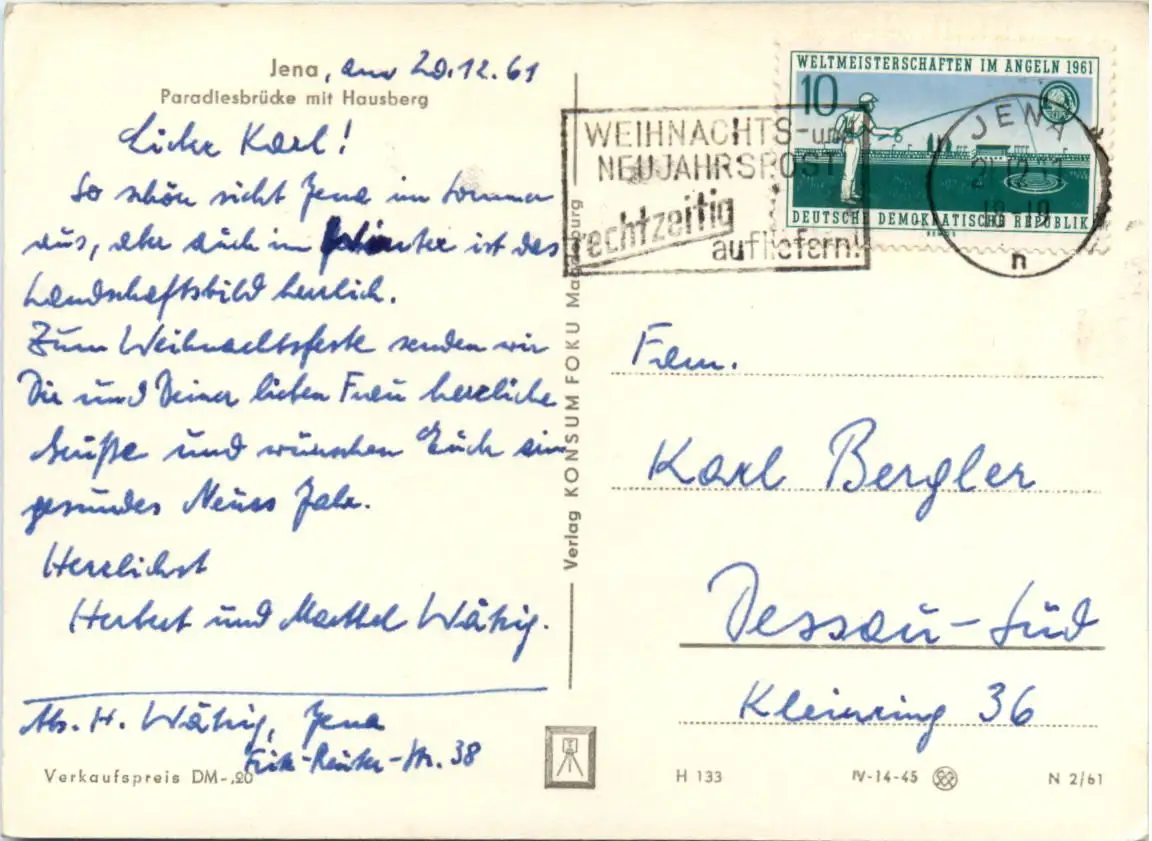 Jena, am 20.12.61
Paradiesbrücke mit Hausberg
Lieber Karl!
So schön sieht Jena im Sommer
aus, aber auch im Winter ist das
Landschaftsbild herrlich.
Zum Weihnachtsfeste senden wir
Dir und Deiner lieben Frau herzliche
Grüße und wünschen Euch ein
gesundes Neues Jahr.
Herzlichst
Herbert und Marthel Wätzig.
Abs. H. Wätzig, Jena
Fritz-Reuter-Str. 38
Verkaufspreis DM-,20
Verlag KONSUM FOKU Magdeburg
WELTMEISTERSCHAFTEN IM ANGELN 1961
10
DEUTSCHE DEMOKRATISCHE REPUBLIK
WEIHNACHTS-und
NEUJAHRSPOST
rechtzeitig
aufliefern!
JENA
18-19
n
Fam.
Karl Bergler
Dessau-Süd
Kleinring 36
H 133
IV-14-45
N 2/61